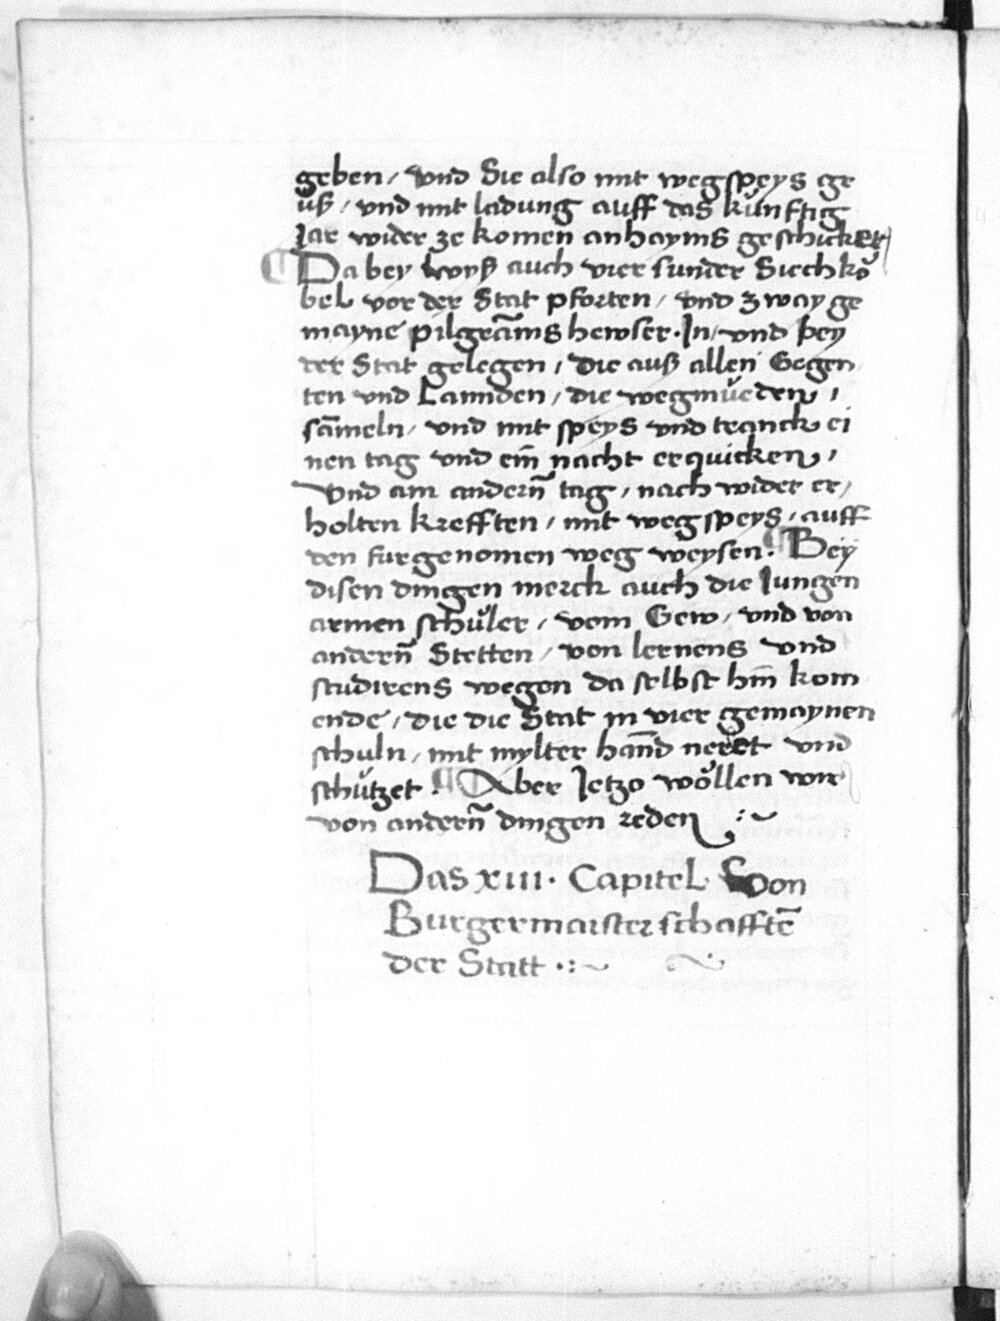 geben / vnd Sie also mit wegspeys ge
üß / vnd mit ladung auff das künfftig
Jar wider ze komen anhayms geschicket
¶ Da bey wyß auch vier sunder Siechkö
bel vor der Stat pforten / vnd zway ge
mayne pilgrāms hewser · In / vnd bey
der Stat gelegen / die auß allen Gegen
ten vnd Lannden / die wegmüeden /
sāmeln / vnd mit speys vnd tranck ei
nen tag vnd ein̄ nacht erquicken /
Vnd am andern̄ tag / nach wider er/
holten krefften / mit wegspeys / auff
den furgenomen weg weysen · ¶ Bey
disen dingen merck auch die Jungen
armen schůler / vom Gew / vnd von
andern̄ Stetten / von lernens vnd
studirens wegen da selbst hin̄ kom
ende / die die Stat in vier gemaynen
schuln / mit mylter hānd neret vnd
schützet · ¶ Aber Jetzo wöllen wir
von andern̄ dingen reden :~
Das xiii · Capitel Von
Burgermaisterschafftē
der Statt ·:~